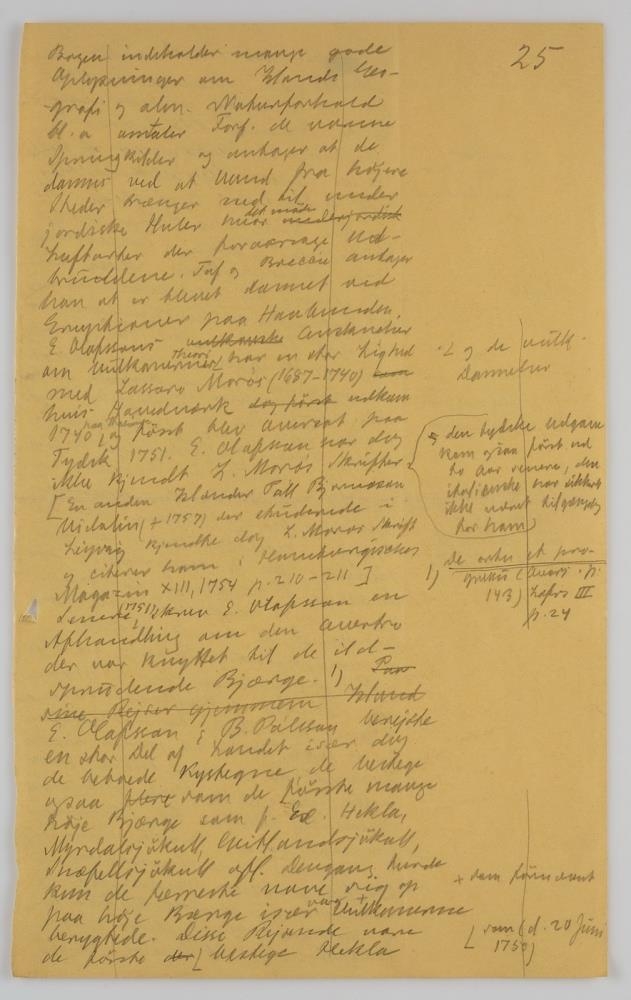 25
Bogen indeholder mange gode
Oplysninger om Islands Geo-
grafi og alm. Naturforhold
bl. a omtaler Forf. de varme
Springkilder og antager at de
dannes ved at Vand fra højere
Steder trænger ned til under
jordiske Huler
Luftarter der foraarsage Ud-
bruddene. og Breccie antager
han at er blevet dannet ved
Eruptioner paa Havbunden.
E. Olafssons vulkanske Anskuelser
om Vulkanernes Theori har en stor Lighed
med Lazzaro Moros (1687-1740)
hvis Hovedværk dog først udkom
1740 og først blev oversat paa
Tydsk 1751. E. Olafsson har dog
ikke kjendt L. Moros Skrifter.
[En anden Islænder Páll Bjarnason
Vidalin (+1757) der studerede i
Leipzig kjendte dog L. Moros Skrift
og citerer ham i Hamburgisches
Magazin XIII, 1754 p. 210-211]
Senere (1751) skrev E. Olafsson en
Afhandling om den Overtro
der var knyttet til de ild-
sprudende Bjærge. 1) Paa
sine Rejser gjennem Island
E. Olafsson & B. Pálsson berejste
en stor Del af Landet især dog
de beboede Kystegne, de besteg
ogsaa flere som de første mange
høje Bjærge som f. Ex. Hekla,
Myrdalsjökull, Geitlandsjökull,
Snæfellsjökull off. Dengang turde
kun de færreste vove sig op
paa høje Bærge især var Vulkanerne
berygtede. Disse Rejsende vare
de første der [ besteg Hekla
og de vulk.
Dannelser
den tydske Udgave
kom ogsaa først ud
to Aar senere, den
italienske har sikkert
ikke været tilgængelig
for ham
1) De ortu et pro-
gressu (Overs. p.
143) Lafrs III
p. 24
+ som
[ som (d. 20 Juni
1750)